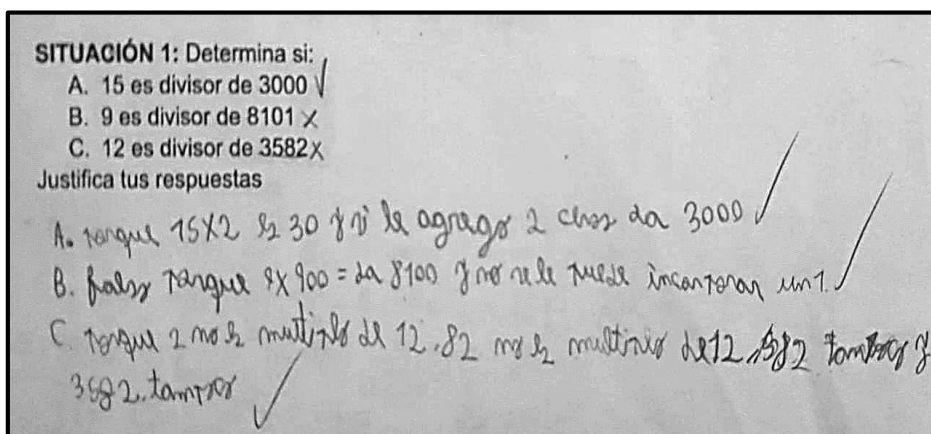 SITUACIÓN 1: Determina si:
A. 15 es divisor de 3000 √
B. 9 es divisor de 8101 X
C. 12 es divisor de 3582 X
Justifica tus respuestas
A. porque 15X2 es 30 y si le agrego 2 ceros da 3000
B. falso porque 9x900 = da 8100 y no se le puede incorporar un 1.
C. porque 2 no es multiplo de 12, 82 no es multiplo de 12, 582 tampoco y
3582. tampoco